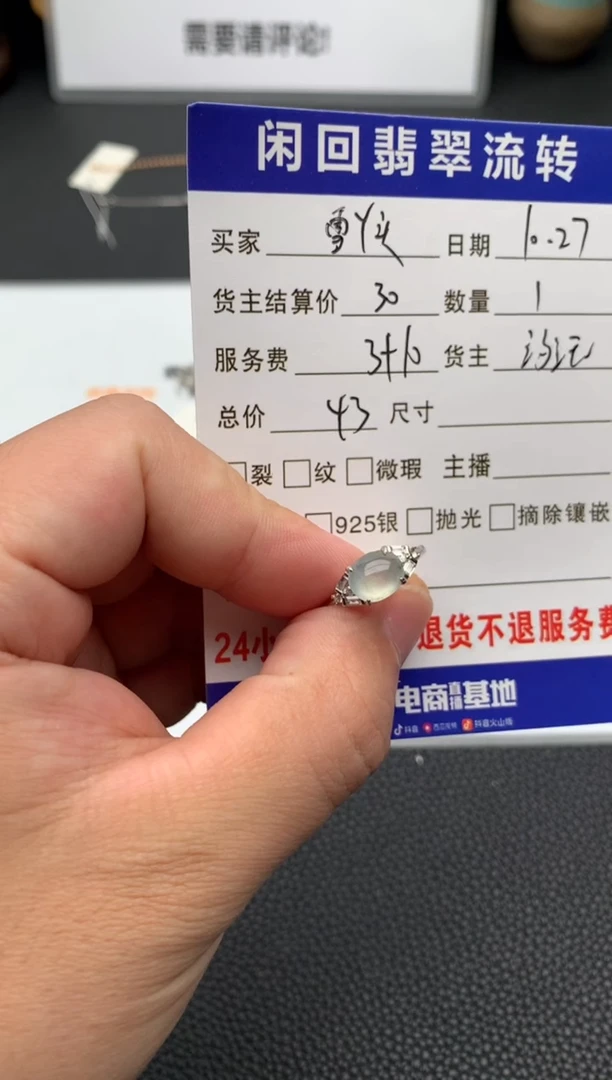 需要请评论!
闲回翡翠流转
买家 日期 10.27
货主结算价 30 数量 1
服务费 3+10 货主
总价 43 尺寸
裂 纹 微瑕 主播
925银 抛光 摘除镶嵌
24小 退货不退服务费
电商直播基地
抖音 西瓜视频 抖音火山版